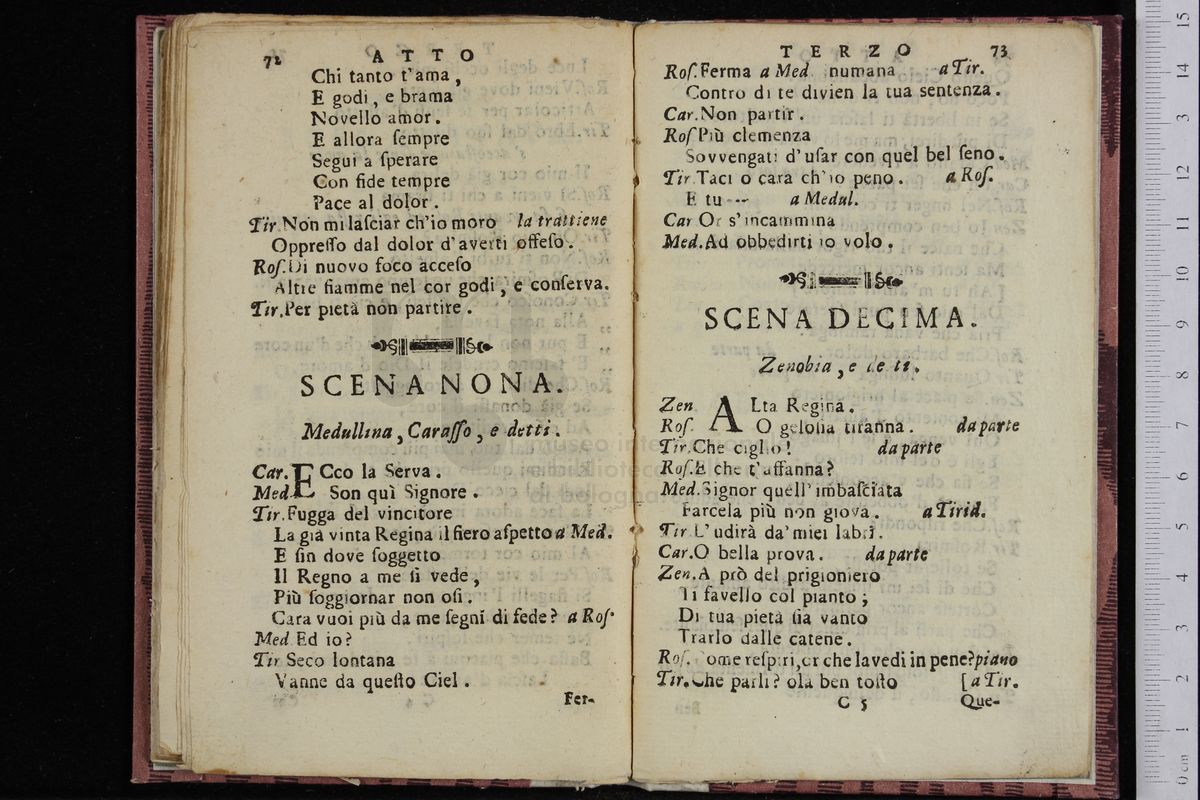 72 ATTO
Chi tanto t'ama,
E godi, e brama
Novello amor.
E allora ſempre
Segui a ſperare
Con fide tempre
Pace al dolor.
Tir. Non mi laſciar ch'io moro la trattiene
Oppreſſo dal dolor d'averti offeſo.
Roſ. Di nuovo foco acceſo
Altre fiamme nel cor godi, e conſerva.
Tir. Per pietà non partire.
SCENA NONA.
Medullina, Caraſſo, e detti.
Car. ECco la Serva.
Med. Son quì Signore.
Tir. Fugga del vincitore
La già vinta Regina il fiero aſpetto a Med.
E ſin dove ſoggetto
Il Regno a me ſi vede,
Più ſoggiornar non oſi.
Cara vuoi più da me ſegni di fede? a Roſ.
Med Ed io?
Tir Seco lontana
Vanne da queſto Ciel.
Fer-
TERZO 73
Roſ. Ferma a Med numana a Tir.
Contro di te divien la tua sentenza.
Car. Non partir.
Roſ Più clemenza
Sovvengati d'uſar con quel bel ſeno.
Tir. Taci o cara ch'io peno. a Roſ.
E tu --- a Medul.
Car Or s'incammina
Med. Ad obbedirti io volo.
SCENA DECIMA.
Zenobia, e de ti.
Zen ALta Regina.
Roſ. O geloſia tiranna. da parte
Tir. Che ciglio! da parte
Roſ. E che t'affanna?
Med. Signor quell' imbaſciata
Farcela più non giova. a Tirid.
Tir. L'udirà da' miei labri.
Car. O bella prova. da parte
Zen. A prò del prigioniero
Ti favello col pianto;
Di tua pietà ſia vanto
Trarlo dalle catene.
Roſ. Come reſpiri, or che la vedi in pene? piano
Tir. Che parli? olà ben toſto [a Tir.
C 5 Que-